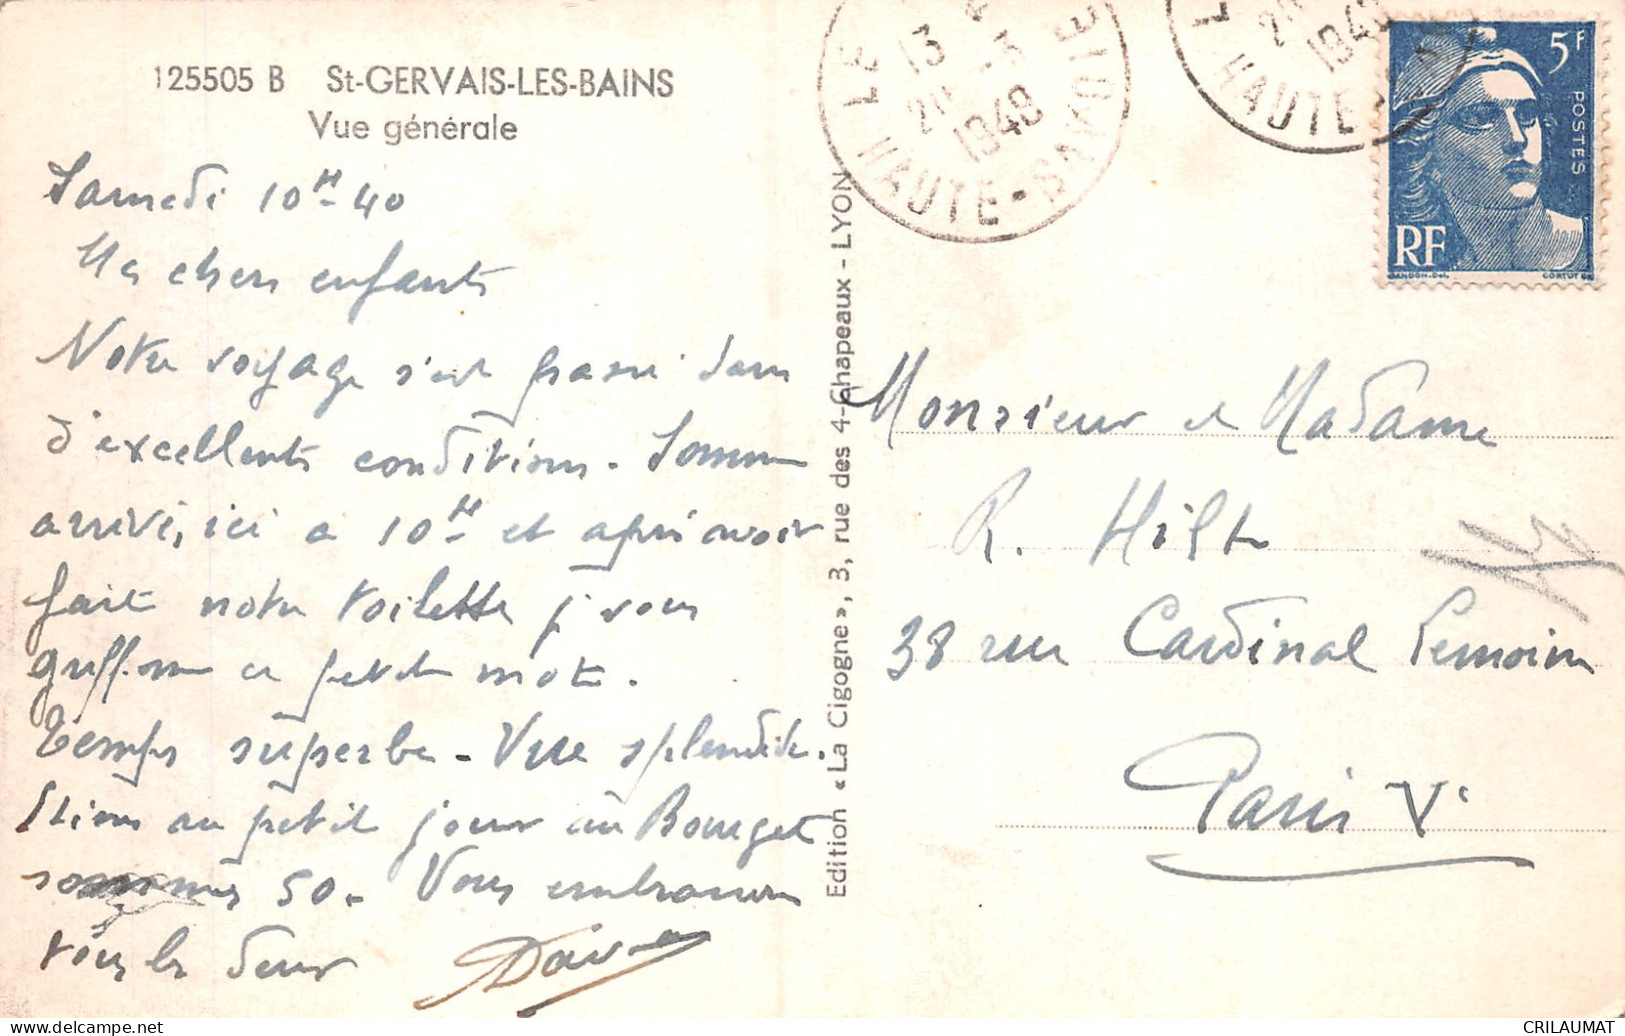 125505 B St-GERVAIS-LES-BAINS
Vue générale
Samedi 10H 40
Mes chers enfants
Notre voyage s'est passé dans
d'excellentes conditions. Sommes
arrivés, ici a 10H et après avoir
fait notre toilette je vous
griffonne ce petit mot.
Temps superbe - Vue splendide.
au petit jour au Bourget
sommes 50. Vous embrassons
tous les deux
Edition « La Cigogne », 3, rue des 4-Chapeaux - LYON
LE
13
20 -3
1948
HAUTE-SAVOIE
L
1948
HAUTE
5F
POSTES
RF
GANDON.Del.
CORTOT
Monsieur et Madame
R. Hilt
38 rue Cardinal Lemoine
Paris Ve
CRILAUMAT